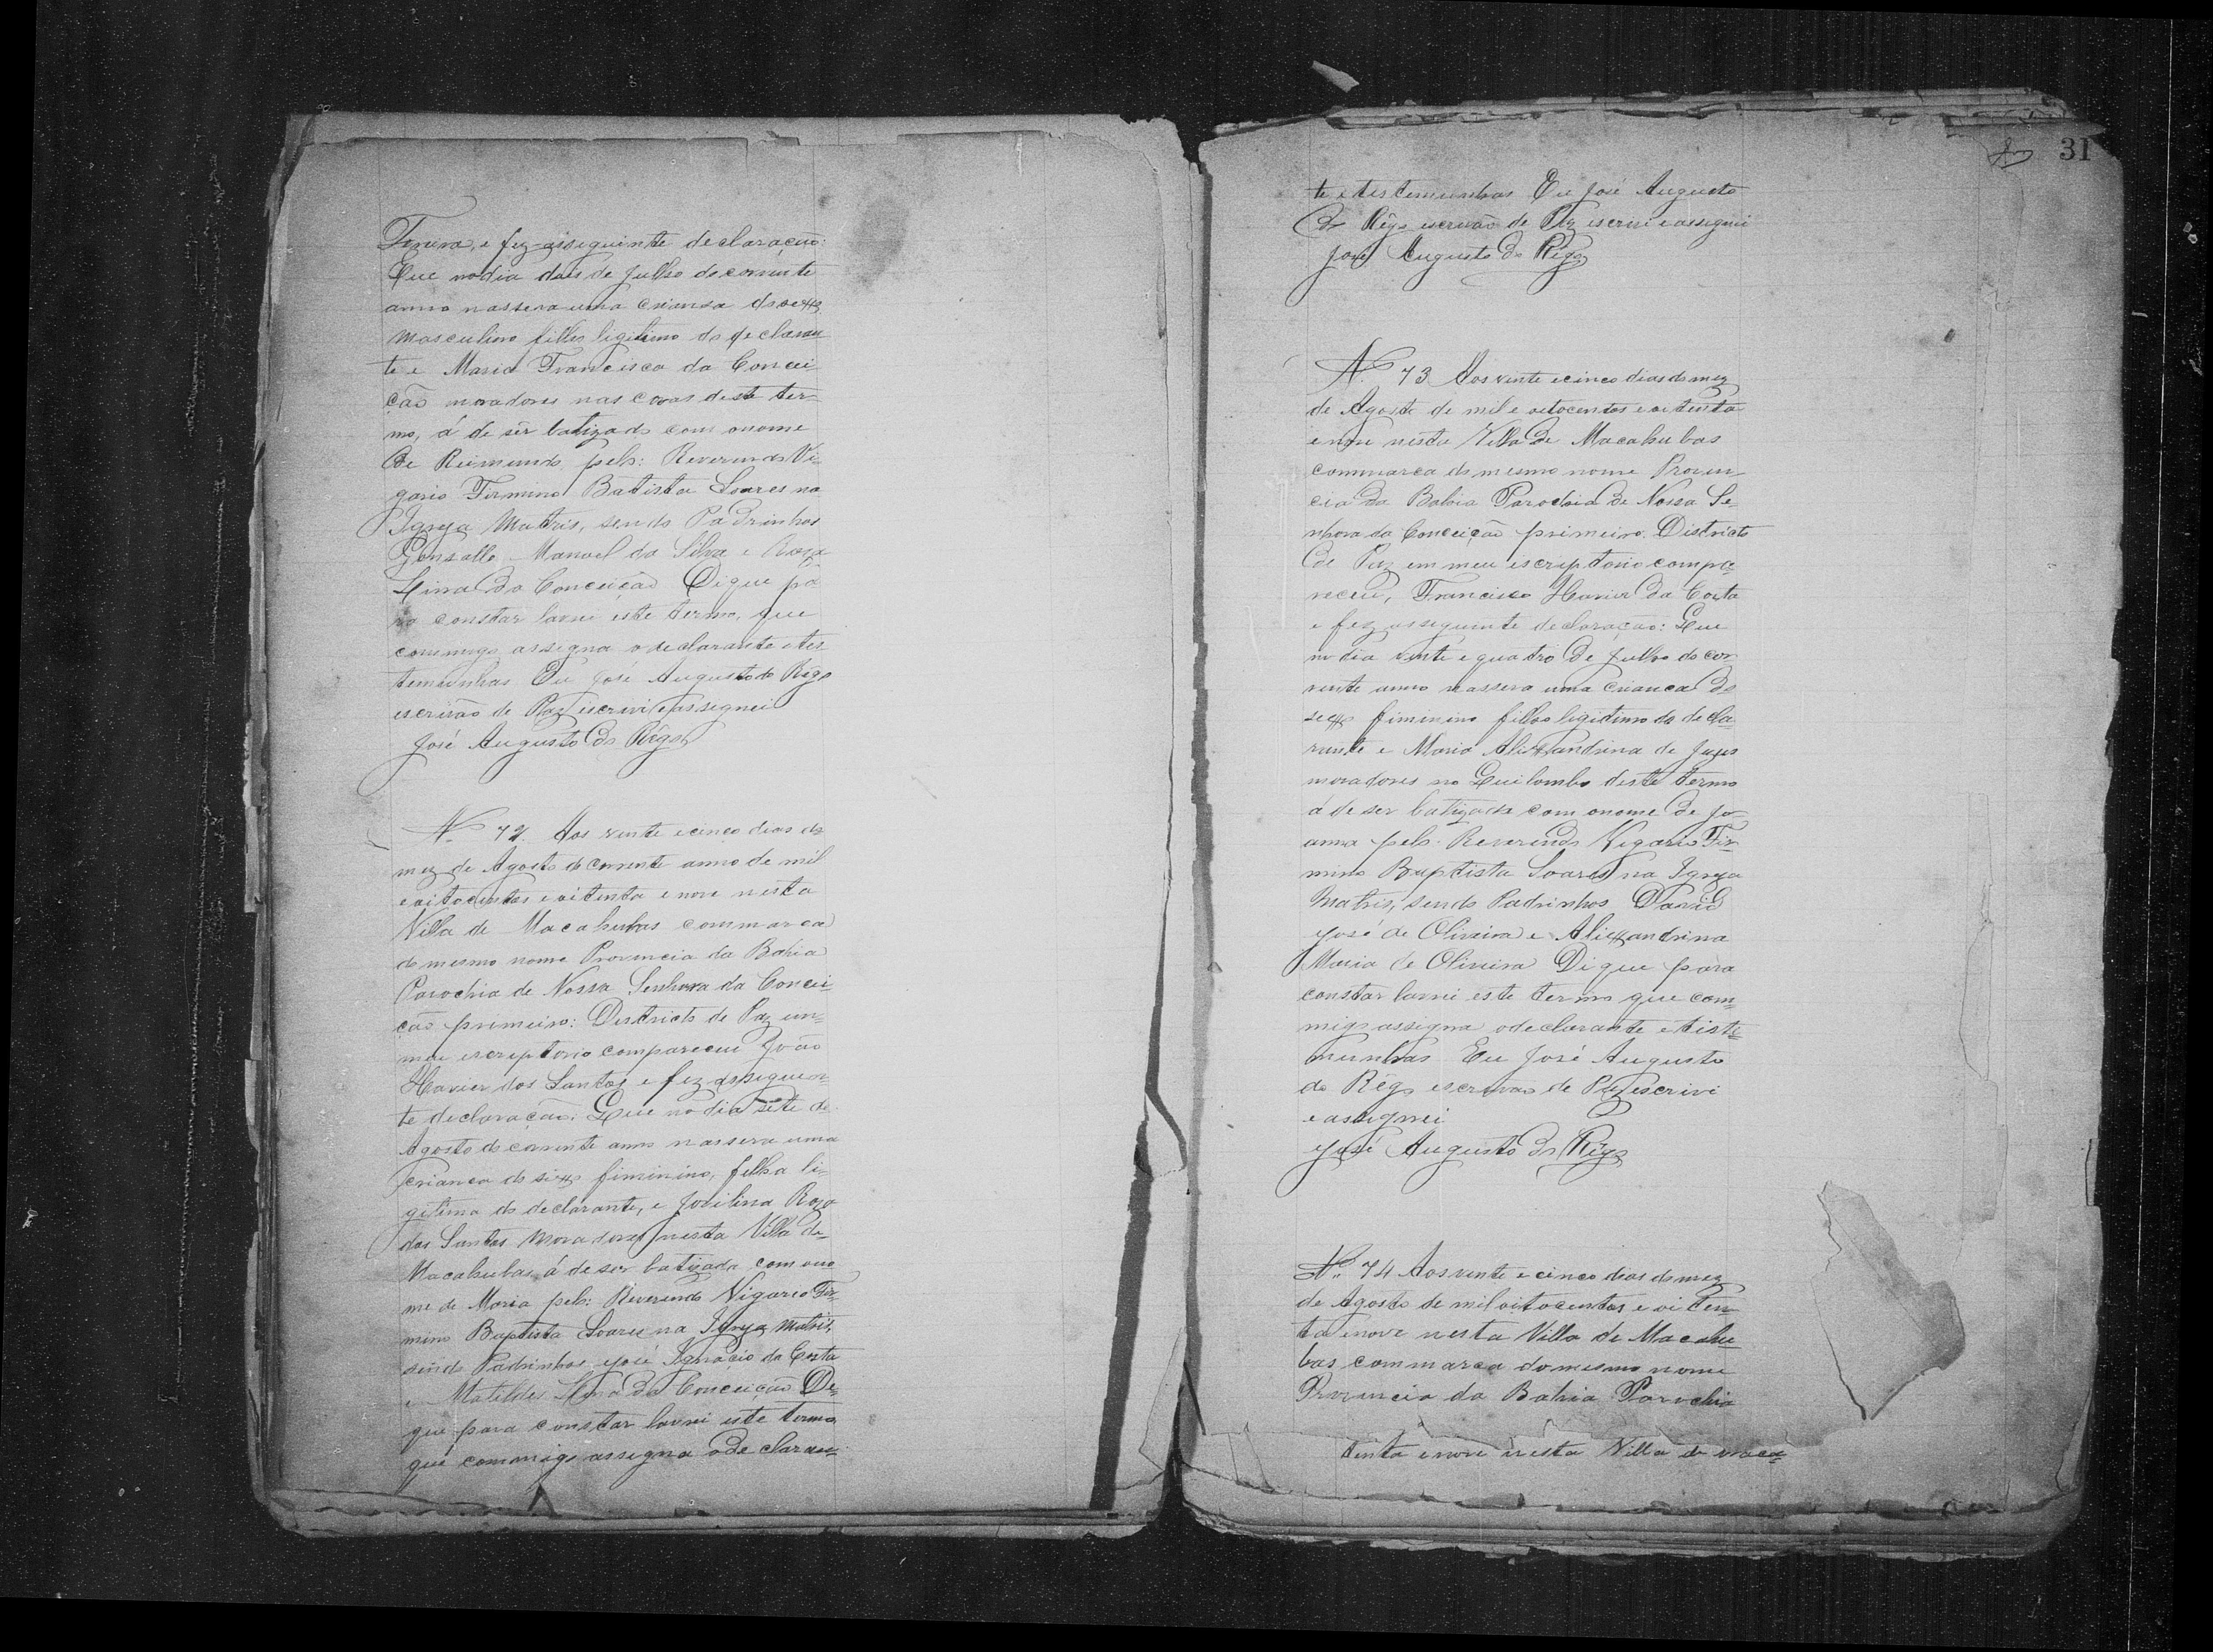 e fez asseguinte declaração:
Que nodia dois de Julho do corrente
anno nassera uma criansa do sexo
masculino filho ligitimo do declaran
te e Maria Francisca da Concei
ção moradores nas covas deste ter-
mo, á de sêr batizado com onome
de Reimundo pelo: Reverendo Vi-
gario Firmino Batista Soares na
Igreja Matris, sendo Padrinhos
Gonsallo Manoel da Silva e Roza
Lina da Conceição Di que pa
ra constar lavrei este termo, que
commigo assigna o declarante e tes
temunhas Eu José Augusto do Rêgo
escrivão de Paz escrivi e assegnei
José Augusto do Rêgo
N. 72. Aos vente ecinco dias do
mez de Agosto do corrente anno de mil
eoitocentos eoitenta e nove nesta
Villa de Macahubas commarca
do mesmo nome Provincia da Bahia
Parochia de Nossa Senhora da Concei-
ção primeiro: Districto de Paz em-
meu escriptorio compareceu João
Havier dos Santos e fez asseguen-
te declaração: Que no dia sete de
Agosto do corrente anno nassera uma
crianca do sexo fiminino, filha li-
gitima do declarante, e Jovilina Roza
dos Santos moradores nesta Villa de
Macahubas, á de ser batizada com ono
me de Maria pelo: Reverendo Vigario Fir-
mino Baptista Soares na Igreja Matris,
sendo Padrinhos José Ignacio da Costa
e Matildes da Conceição De-
que para constar lavrei este termo
que commigo assigna ode claran-
31
te e testemunhas Eu José Augusto
do Rêgo escrivão de Paz escrivi e assignei
José Augusto do Rêgo
N. 73 Aos vente ecinco dias do mez
de Agosto de mil e oitocentos e oitenta
e nove nesta Villa de Macahubas
commarca do mesmo nome Provin
cia da Bahia Parochia de Nossa Se-
nhora da Conceição primeiro. Districto
de Paz em meu escriptorio compa-
receu, Francisco Havier da Costa
e fez asseguinte declaração: Que
no dia vente e quatro de Julho do cor
rente anno nassera uma crianca do
sexo fiminino filho ligidimo do decla-
rante e Maria Alixandrina de Jezus
moradores no Quilombo deste termo
á de ser batizada com onome de Jo-
anna pelo Reverendo Vigario Fir-
mino Baptista Soares na Igreja
Matris, sendo Padrinhos David
José de Oliveira e Alixandrina
Maria de Oliveira Di que para
constar lavrei este termo que com-
migo assigna odeclarante e teste-
munhas Eu José Augusto
do Rêgo escrivão de Paz escrivi
e assignei
José Augusto do Rêgo
N. 74 Aosvente e cinco dias do mez
de Agosto de mil oitocentos e oiten-
ta enove nesta Villa de Macahu-
bas commarca domesmo nome
Provincia da Bahia Parochia
tenta enove nesta Villa de maca-